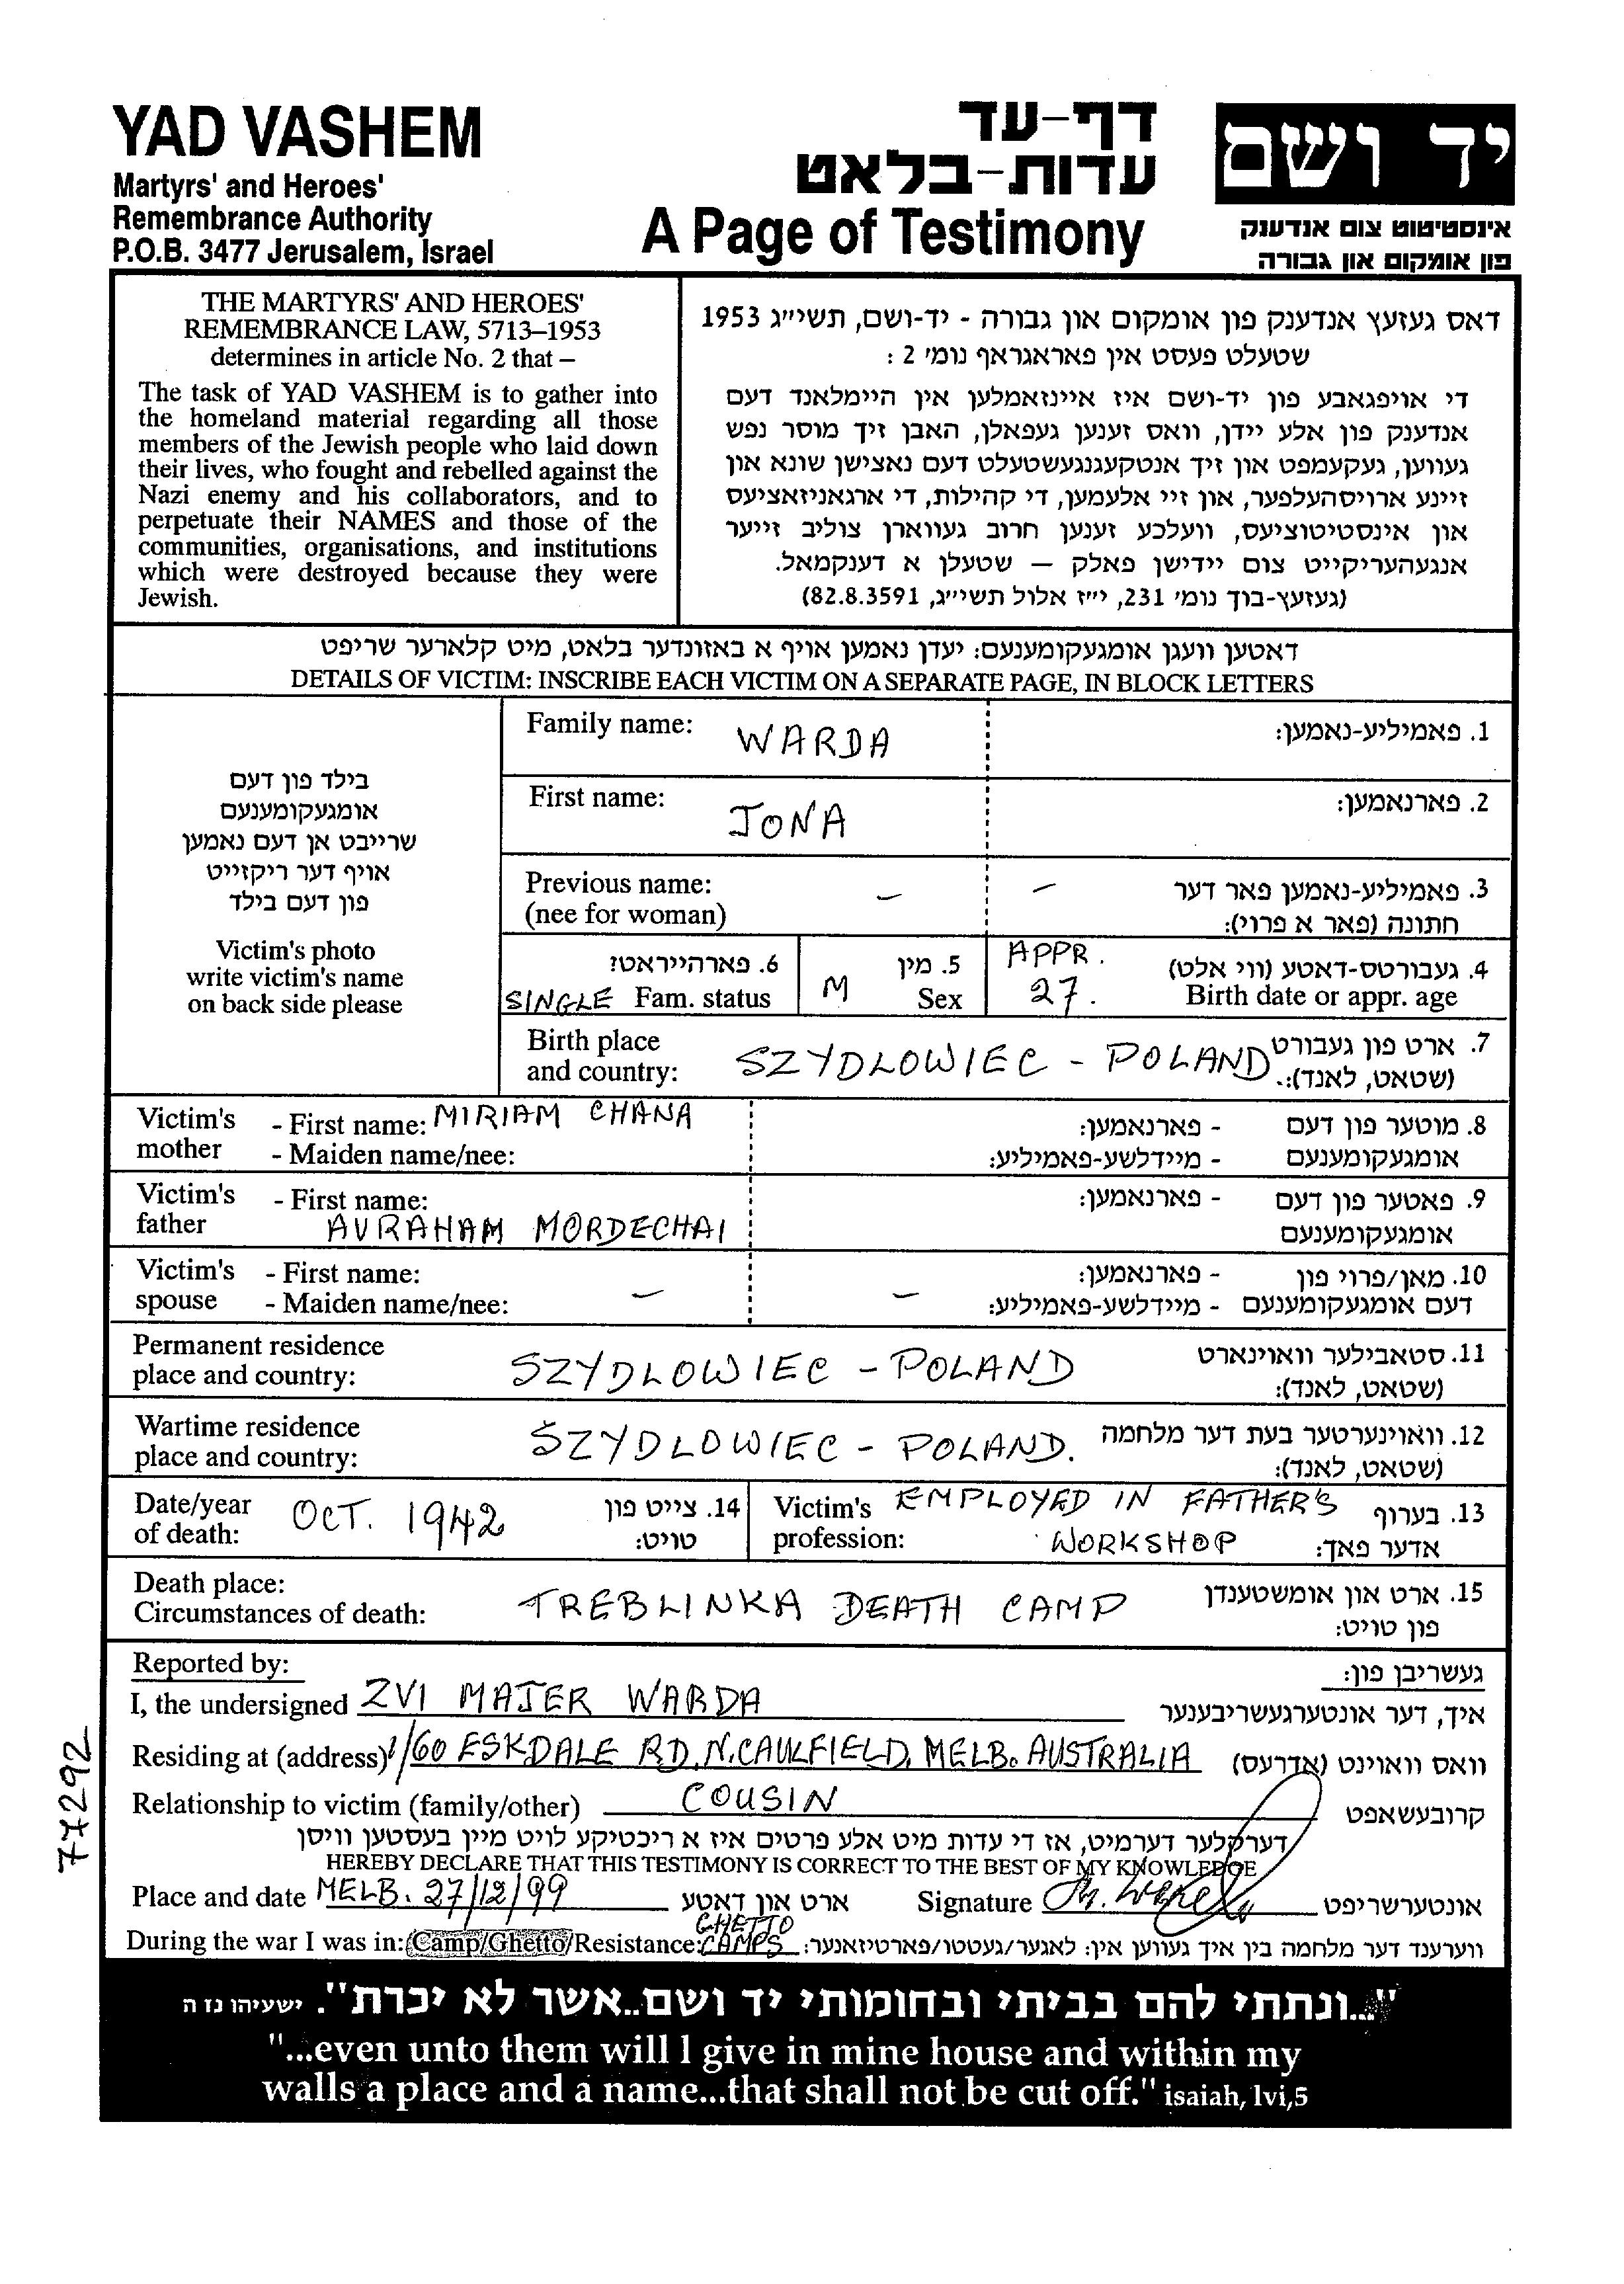 YAD VASHEM
Martyrs' and Heroes'
Remembrance Authority
P.O.B. 3477 Jerusalem, Israel
דף-עד
עדות-בלאט
A Page of Testimony
יד ושם
אינסטיטוט צום אנדענק
פון אומקום און גבורה
THE MARTYRS' AND HEROES'
REMEMBRANCE LAW, 5713–1953
determines in article No. 2 that –
The task of YAD VASHEM is to gather into
the homeland material regarding all those
members of the Jewish people who laid down
their lives, who fought and rebelled against the
Nazi enemy and his collaborators, and to
perpetuate their NAMES and those of the
communities, organisations, and institutions
which were destroyed because they were
Jewish.
דאס געזעץ אנדענק פון אומקום און גבורה - יד-ושם, תשי״ג 1953
שטעלט פעסט אין פאראגראף נומ׳ 2 :
די אויפגאבע פון יד-ושם איז איינזאמלען אין היימלאנד דעם
אנדענק פון אלע יידן, וואס זענען געפאלן, האבן זיך מוסר נפש
געווען, געקעמפט און זיך אנטקעגנגעשטעלט דעם נאצישן שונא און
זיינע ארויסהעלפער, און זיי אלעמען, די קהילות, די ארגאניזאציעס
און אינסטיטוציעס, וועלכע זענען חרוב געווארן צוליב זייער
אנגעהעריקייט צום יידישן פאלק — שטעלן א דענקמאל.
(געזעץ-בוך נומ׳ 231, י״ז אלול תשי״ג, 82.8.3591)
דאטען וועגן אומגעקומענעם: יעדן נאמען אויף א באזונדער בלאט, מיט קלארער שריפט
DETAILS OF VICTIM: INSCRIBE EACH VICTIM ON A SEPARATE PAGE, IN BLOCK LETTERS
בילד פון דעם
אומגעקומענעם
שרייבט אן דעם נאמען
אויף דער ריקזייט
פון דעם בילד
Victim's photo
write victim's name
on back side please
Family name: WARDA 1. פאמיליע-נאמען:
First name: JONA 2. פארנאמען:
Previous name: – – 3. פאמיליע-נאמען פאר דער
(nee for woman) חתונה (פאר א פרוי):
6. פארהייראט? 5. מין APPR. 4. געבורטס-דאטע (ווי אלט)
SINGLE Fam. status M Sex 27. Birth date or appr. age
Birth place SZYDLOWIEC - POLAND 7. ארט פון געבורט
and country: (שטאט, לאנד):
Victim's - First name: MIRIAM CHANA - פארנאמען: 8. מוטער פון דעם
mother - Maiden name/nee: - מיידלשע-פאמיליע: אומגעקומענעם
Victim's - First name: - פארנאמען: 9. פאטער פון דעם
father AVRAHAM MORDECHAI אומגעקומענעם
Victim's - First name: - פארנאמען: 10. מאן/פרוי פון
spouse - Maiden name/nee: – – - מיידלשע-פאמיליע: דעם אומגעקומענעם
Permanent residence 11. סטאבילער וואוינארט
place and country: SZYDLOWIEC - POLAND (שטאט, לאנד):
Wartime residence 12. וואוינערטער בעת דער מלחמה
place and country: SZYDLOWIEC - POLAND. (שטאט, לאנד):
Date/year OCT. 1942 14. צייט פון Victim's EMPLOYED IN FATHER'S 13. בערוף
of death: טויט: profession: WORKSHOP אדער פאך:
Death place: 15. ארט און אומשטענדן
Circumstances of death: TREBLINKA DEATH CAMP פון טויט:
Reported by: געשריבן פון:
I, the undersigned ZVI MAJER WARDA איך, דער אונטערגעשריבענער
Residing at (address) 1/60 ESKDALE RD, N. CAULFIELD, MELB. AUSTRALIA וואס וואוינט (אדרעס)
Relationship to victim (family/other) COUSIN קרובעשאפט
דערקלער דערמיט, אז די עדות מיט אלע פרטים איז א ריכטיקע לויט מיין בעסטען וויסן
HEREBY DECLARE THAT THIS TESTIMONY IS CORRECT TO THE BEST OF MY KNOWLEDGE
Place and date MELB. 27/12/99 ארט און דאטע Signature אונטערשריפט
During the war I was in: Camp/Ghetto/Resistance: GHETTO CAMPS ווערענד דער מלחמה בין איך געווען אין: לאגער/געטטו/פארטיזאנער:
77292
"...ונתתי להם בביתי ובחומותי יד ושם..אשר לא יכרת". ישעיהו נז ה
"...even unto them will I give in mine house and within my
walls a place and a name...that shall not be cut off." isaiah, lvi,5